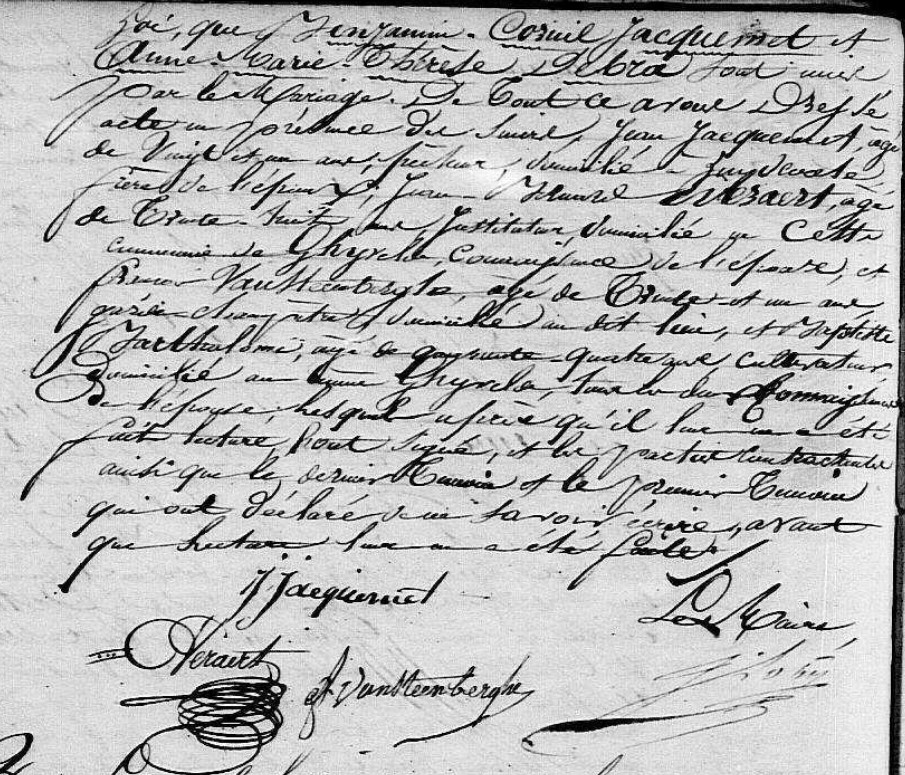 Loi, que Benjamin-Corneil Jacquemet et
Anne-Marie Thérèse Debra sont unis
par le Mariage. De Tout ce avons Dressé
acte en présence des Sieurs, Jean Jacquemet, agé
de Vingt et un ans, pêcheur, domicilié à Zuydcoote,
frère de l'époux, Jean-
de Trente-huit ans, Instituteur, domicilié en Cette
commune de Ghyvelde, Connaissance de l'épouse, et
Vansteenberghe, agé de Trente et un ans,
garde-champêtre, domicilié au dit lieu, et Baptiste
agé de quarante-quatre ans, cultivateur
domicilié au même Ghyvelde, tous Connaissances
de l'épouse, lesquels après qu'il leur en a été
fait lecture, l'ont signé, et les parties Contractantes
ainsi que le dernier Temoin et le premier Temoin
qui ont déclaré de ne savoir écrire, avant
que lecture leur en a été faite.
J Jacquemet
Le Maire
Vansteenberghe